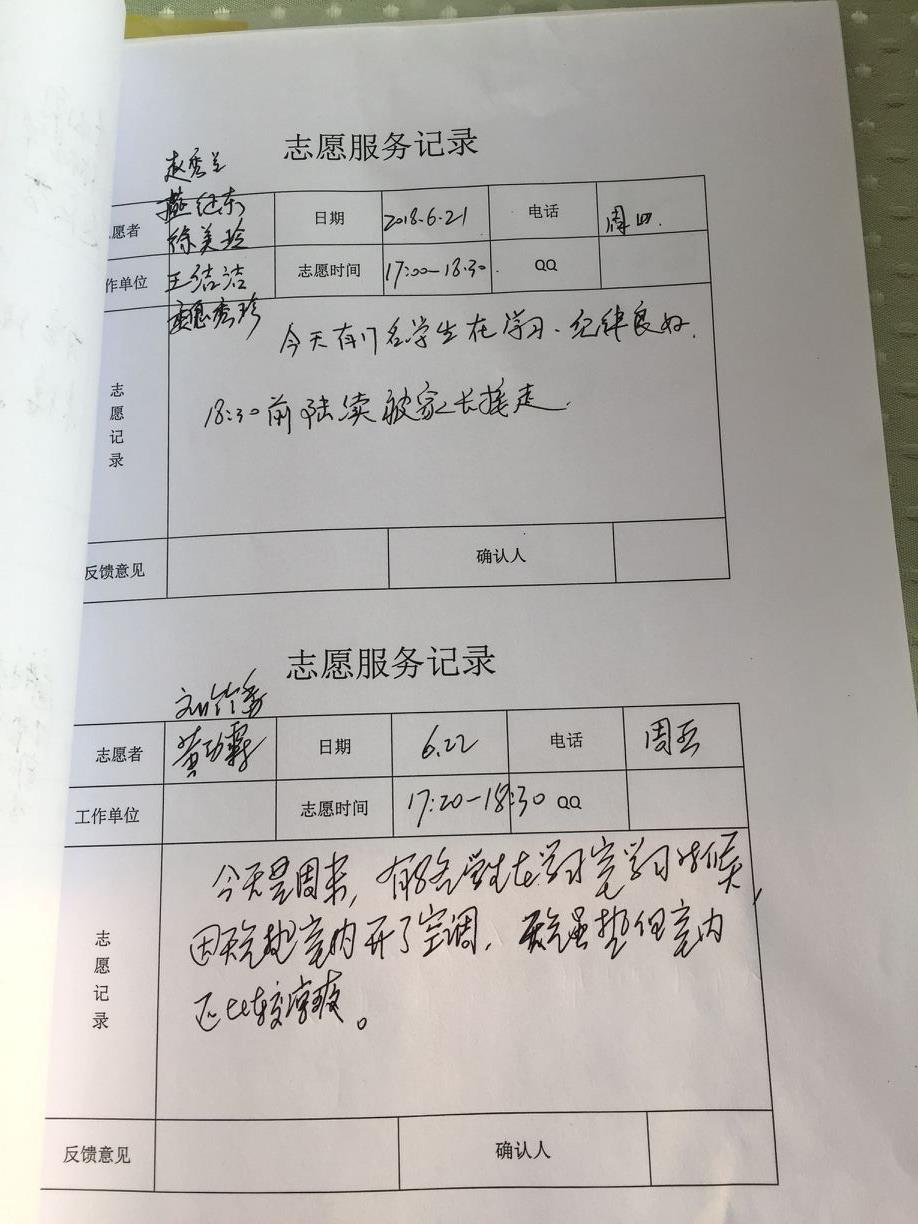 志愿服务记录
赵秀兰
愿者 继东 日期 2018.6.21 电话 周四.
徐美玲
作单位 王洁洁 志愿时间 17:00-18:30. QQ
秀珍
志愿记录 今天有17名学生在学习、纪律良好.
18:30前陆续被家长接走.
反馈意见 确认人
志愿服务记录
刘竹秀
志愿者 黄幼霖 日期 6.22 电话 周五
工作单位 志愿时间 17:20-18:30 QQ
志愿记录 今天是周末, 有8名学生在学习室学习
因天气热室内开了空调, 天气虽热但室内
还比较凉爽。
反馈意见 确认人